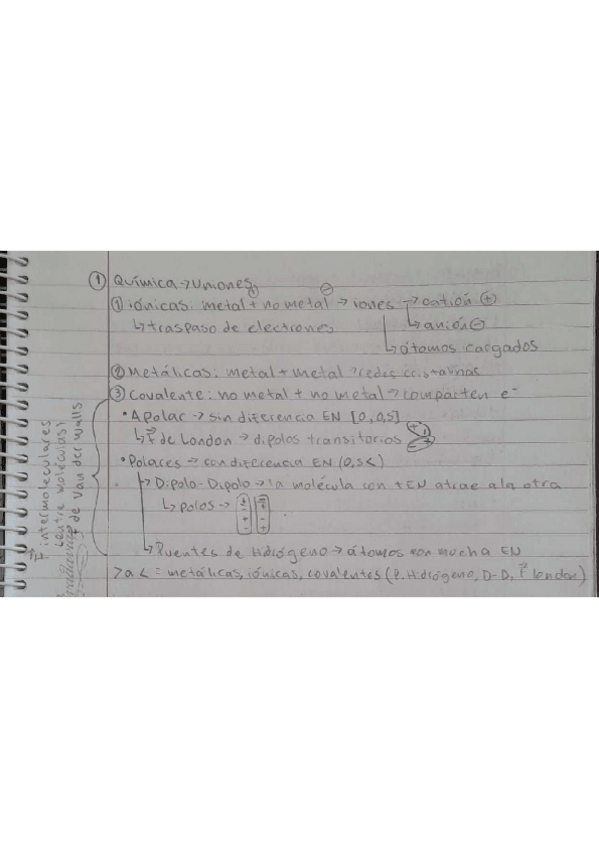 ① Química → Uniones
① iónicas: metal⊕ + no metal⊖ → iones → catión ⊕
↳ traspaso de electrones ↳ anión ⊖
↳ átomos cargados
② Metálicas: metal + metal → redes cristalinas
③ Covalente: no metal + no metal → comparten e⁻
• Apolar → sin diferencia EN [0, 0,5]
↳ F⃗ de London → dipolos transitorios
• Polares → con diferencia EN (0,5<)
↳ Dipolo-Dipolo → la molécula con +EN atrae a la otra
↳ polos →
↳ Puentes de Hidrógeno → átomos con mucha EN
> a < = metálicas, iónicas, covalentes (P. Hidrógeno, D-D, F⃗ london)
F⃗ intermoleculares
(entre moléculas)
F de Van der Walls